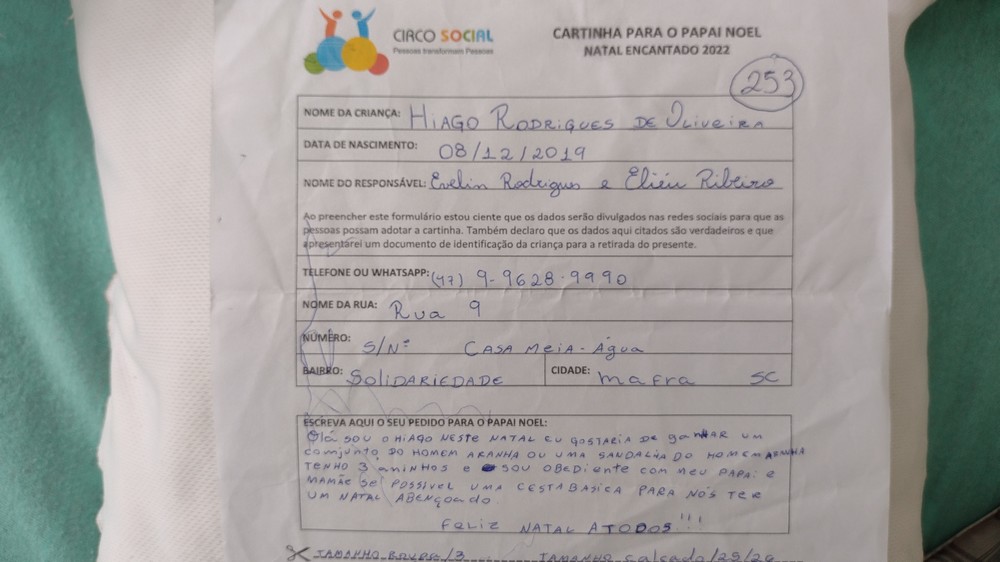 CIRCO SOCIAL
Pessoas transformam Pessoas
CARTINHA PARA O PAPAI NOEL
NATAL ENCANTADO 2022
253
NOME DA CRIANÇA: HIAGO RODRIGUES DE OLIVEIRA
DATA DE NASCIMENTO: 08/12/2019
NOME DO RESPONSÁVEL: Evelin Rodrigues e Eliéu Ribeiro
Ao preencher este formulário estou ciente que os dados serão divulgados nas redes sociais para que as
pessoas possam adotar a cartinha. Também declaro que os dados aqui citados são verdadeiros e que
apresentarei um documento de identificação da criança para a retirada do presente.
TELEFONE OU WHATSAPP: (47) 9-9628-9990
NOME DA RUA: Rua 9
NÚMERO: S/Nº CASA MEIA-ÁGUA
BAIRRO: SOLIDARIEDADE CIDADE: MAFRA SC
ESCREVA AQUI O SEU PEDIDO PARA O PAPAI NOEL:
Olá SOU O HIAGO NESTE NATAL EU GOSTARIA DE gaNHAR UM
COMJUNTO DO HOMEM ARANHA OU UMA SANDALIA DO HOMEM ARANHA
TENHO 3 ANINHOS E SOU OBEDIENTE COM MEU PAPAI E
MAMÃE SE POSSIVEL UMA CESTA BASICA PARA NÓS TER
UM NATAL ABENÇOADO.
FELIZ NATAL ATODOS!!!
TAMANHO ROUPA/3 TAMANHO calçado/28/29